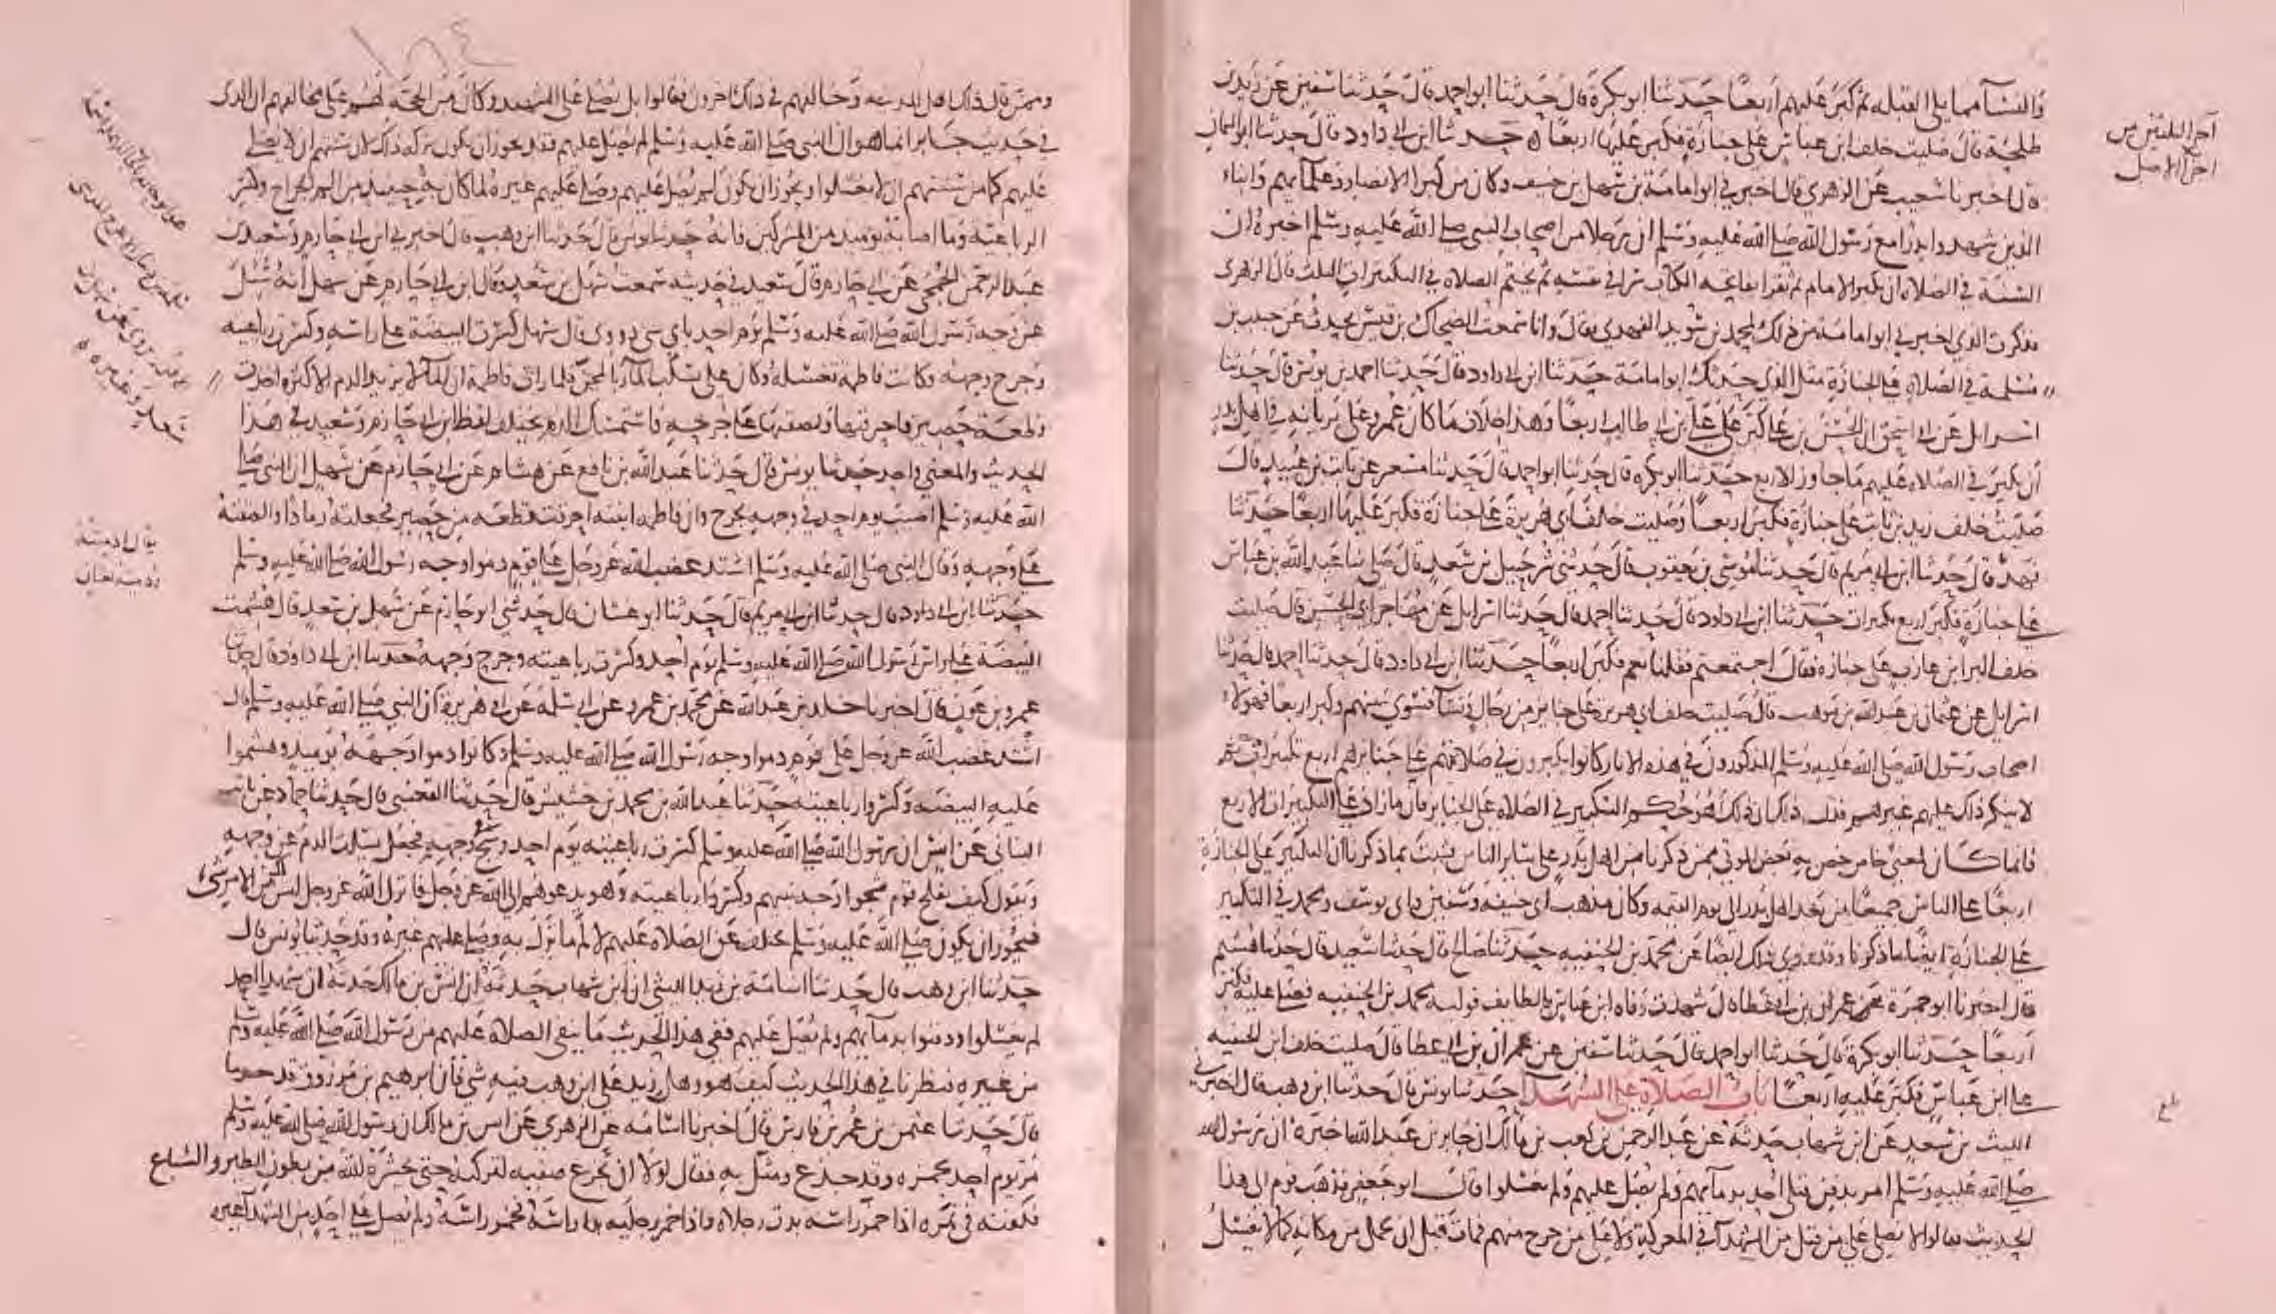 والنسآ مما يلى القبلة ثم كبر عليهم اربعًا حدثنا ابو بكرة قال حدثنا ابو احمد قال حدثنا سفين عن زيد بن
طلحة قال صليت خلف ابن عباس على جنازة فكبر عليها اربعًا حدثنا ابن ابى داود قال حدثنا ابو اليمان
قال اخبرنا شعيب عن الزهرى قال اخبرنى ابو امامة بن سهل بن حنيف وكان من كبرا الانصار وعلمآيهم وابناء
الذين شهدوا بدرا مع رسول الله صلى الله عليه وسلم ان رجلا من اصحاب النبى صلى الله عليه وسلم اخبره ان
السنة فى الصلاة ان يكبر الامام ثم يقرا بفاتحة الكتاب سرا فى نفسه ثم يختم الصلاة فى التكبيرات الثلث قال الزهرى
فذكرت الذى اخبرنى ابو امامة من ذلك لمحمد بن سويد الفهرى فقال وانا سمعت الضحاك بن قيس يحدث عن حبيب بن
مسلمة فى الصلاة على الجنازة مثل الذى حدثك ابو امامة حدثنا ابن ابى داود قال حدثنا احمد بن يونس قال حدثنا
اسرايل عن ابى اسحق ان الحسن بن على كبر على على بن ابى طالب اربعًا وهذا خلاف ما كان عمر وعلى يريانه فى اهل بدر
ان يكبر فى الصلاة عليهم ما جاوز الاربع حدثنا ابو بكرة قال حدثنا ابو احمد قال حدثنا مسعر عن ثابت بن عبيد قال
صليت خلف زيد بن ثابت على جنازة فكبر اربعًا وصليت خلف ابى هريرة على جنازة فكبر عليها اربعًا حدثنا
فهد قال حدثنا ابن ابى مريم قال حدثنا موسى بن يعقوب قال حدثنى شرحبيل بن سعد قال صلى بنا عبد الله بن عباس
على جنازة فكبر اربع تكبيرات حدثنا ابن ابى داود قال حدثنا احمد قال حدثنا اسرايل عن مهاجر ابى الحسن قال صليت
خلف البرا بن عازب على جنازة فقال اجتمعتم فقلنا نعم فكبر اربعًا حدثنا ابن ابى داود قال حدثنا احمد قال حدثنا
اسرايل عن عثمان بن عبد الله بن موهب قال صليت خلف ابى هريرة على جنايز من رجال ونسآ فسوى بينهم وكبر اربعًا فهولاء
اصحاب رسول الله صلى الله عليه وسلم المذكورون فى هذه الاثار كانوا يكبرون فى صلاتهم على جنايزهم اربع تكبيرات ثم
لا ينكر ذلك عليهم غيرهم فدل ذلك ان ذلك هو حكم التكبير فى الصلاة على الجنايز فان ما زاد على التكبيرات الاربع
فانما كان لمعنى خاص خص به بعض الموتى ممن ذكرنا من اهل بدر على ساير الناس فثبت بما ذكرنا ان التكبير على الجنازة
اربعًا على الناس جميعًا من بعد اهل بدر الى يوم القيمة وكان مذهب ابى حنيفة وسفين وابى يوسف ومحمد فى التكبير
على الجنازة ايضًا ما ذكرنا وقد روى ذلك ايضًا عن محمد بن الحنفية حدثنا صالح قال حدثنا سعيد قال حدثنا هشيم
قال اخبرنا ابو حمزة عمران بن ابى عطا قال شهدت وفاه ابن عباس بالطايف فوليه محمد بن الحنفية فصلى عليه فكبر
اربعًا حدثنا ابو بكرة قال حدثنا ابو احمد قال حدثنا سفين عن عمران بن ابى عطا قال صليت خلف ابن الحنفية
على ابن عباس فكبر عليه اربعًا باب الصلاة على الشهدا حدثنا يونس قال حدثنا ابن وهب قال اخبرنى
الليث بن سعد عن ابن شهاب حدثه عن عبد الرحمن بن كعب بن مالك ان جابر بن عبد الله اخبره ان رسول الله
صلى الله عليه وسلم امر بدفن قتلى احد بدمآيهم ولم يصل عليهم ولم يغسلوا قال ابو جعفر فذهب قوم الى هذا
الحديث فقالوا لا يصلى على من قتل من الشهدآ فى المعركة ولا على من جرح منهم فمات قبل ان يحمل من مكانه كما لا يغسل
آخر الثلثين من
اجزا الاصل
بلغ
١٨٤
وممن قال ذلك اهل المدينة وخالفهم فى ذلك اخرون فقالوا بل يصلى على الشهيد وكان من الحجة لهم على مخالفهم ان الذى
فى حديث جابر انما هو ان النبى صلى الله عليه وسلم لم يصل عليهم فقد يجوز ان يكون تركه ذلك لان سنتهم ان لا يصلى
عليهم كما من سنتهم ان لا يغسلوا ويجوز ان يكون لم يصل عليهم وصلى عليهم غيره لما كان به حينيد من الم الجراح وكسر
الرباعية وما اصابه يوميد من المشركين فانه حدثنا يونس قال حدثنا ابن وهب قال اخبرنى ابن ابى حازم وسعيد بن
عبد الرحمن الجمحى عن ابى حازم قال سعيد فى حديثه سمعت سهل بن سعد وقال ابن ابى حازم عن سهل انه سئل
عن وجه رسول الله صلى الله عليه وسلم يوم احد باى شى دووى قال سهل كسرت البيضة على راسه وكسرت رباعيته
وجرح وجهه وكانت فاطمة تغسله وكان على يسكب المآ بالمجن فلما رات فاطمة ان المآ لا يزيد الدم الا كثرة اخذت
قطعة حصير فاحرقتها والصقتها على جرحه فاستمسك الدم يختلف لفظ ابن ابى حازم وسعيد فى هذا
الحديث والمعنى واحد حدثنا يونس قال حدثنا عبد الله بن نافع عن هشام عن ابى حازم عن سهل ان النبى صلى
الله عليه وسلم اصيب يوم احد فى وجهه بجرح وان فاطمة ابنته احرقت قطعة من حصير فجعلته رمادا والصقته
على وجهه وقال النبى صلى الله عليه وسلم اشتد غضب الله عز وجل على قوم دموا وجه رسول الله صلى الله عليه وسلم
حدثنا ابن ابى داود قال حدثنا ابن ابى مريم قال حدثنا ابو غسان قال حدثنى ابو حازم عن سهل بن سعد قال هشمت
البيضة على راس رسول الله صلى الله عليه وسلم يوم احد وكسرت رباعيته وجرح وجهه حدثنا ابن ابى داود قال حدثنا
عمرو بن عون قال اخبرنا خالد بن عبد الله عن محمد بن عمرو عن ابى سلمة عن ابى هريرة ان النبى صلى الله عليه وسلم قال
اشتد غضب الله عز وجل على قوم دموا وجه رسول الله صلى الله عليه وسلم وكانوا دموا وجهه يوميد وهشموا
عليه البيضة وكسروا رباعيته حدثنا عبد الله بن محمد بن خشيش قال حدثنا القعنبى قال حدثنا حماد عن ثابت
البنانى عن انس ان رسول الله صلى الله عليه وسلم كسرت رباعيته يوم احد وشج وجهه فجعل يسلت الدم عن وجهه
ويقول كيف يفلح قوم شجوا وجه نبيهم وكسروا رباعيته وهو يدعوهم الى الله عز وجل فانزل الله عز وجل ليس لك من الامر شىء
فيجوز ان يكون صلى الله عليه وسلم تخلف عن الصلاة عليهم لالم ما نزل به وصلى عليهم غيره وقد حدثنا يونس قال
حدثنا ابن وهب قال حدثنا اسامة بن زيد الليثى ان ابن شهاب حدثه ان انس بن مالك حدثه ان شهدا احد
لم يغسلوا ودفنوا بدمآيهم ولم يصل عليهم ففى هذا الحديث ما ينفى الصلاة عليهم من رسول الله صلى الله عليه وسلم
من غيره فنظرنا فى هذا الحديث كيف هو وهل زيد على ابن وهب فيه شى فان ابرهيم بن مرزوق قد حدثنا
قال حدثنا عثمن بن عمر بن فارس قال اخبرنا اسامة عن الزهرى عن انس بن مالك ان رسول الله صلى الله عليه وسلم
مر يوم احد بحمزه وقد جدع ومثل به فقال لولا ان تجزع صفيه لتركته حتى يحشره الله من بطون الطير والسباع
فكفنه فى نمره اذا خمر راسه بدت رجلاه واذا خمر رجليه بدا راسه فخمر راسه ولم يصل على احد من الشهدآ غيره
يقال ادميته
ودميته